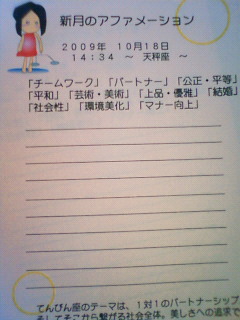 新月のアファメーション
２００９年　１０月１８日
１４：３４　～　天秤座　～
「チームワーク」「パートナー」「公正・平等」
「平和」「芸術・美術」「上品・優雅」「結婚」
「社会性」「環境美化」「マナー向上」
てんびん座のテーマは、１対１のパートナーシップ
そしてそこから繋がる社会全体。美しさへの追求で